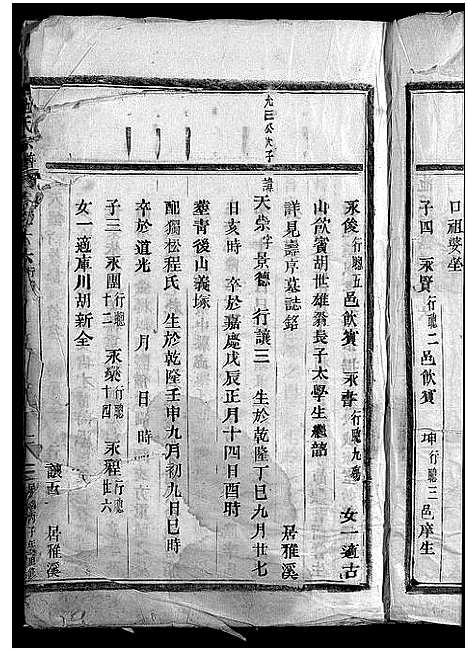 口祖塋坐
子四　永賢行聰二邑飲賓　坤行聰三邑庠生
永俊行聰五邑飲賓　永書行聰九殤　女一適古
山飲賓胡世雄翁長子太學生
詳見壽亭墓誌銘　居雅溪
九三公次子
諱天崇字景德　行讓三　生於乾隆丁巳九月廿七
日亥時　卒於嘉慶戊辰正月十四日酉時
塟青後山義塚
配獨松程氏　生於乾隆壬申九月初九日巳時
卒於道光　月　日　時
子三　永團行聰十二　永樂行聰十四　永程行聰廿六
女一適庫川胡新全
讓五　居雅溪